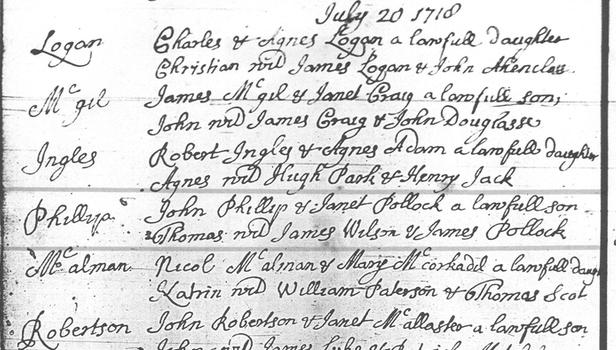 July 20 1718
Logan Charles & Agnes Logan a lawfull daughter
Christian wid James Logan & John
Mcgil James Mcgil & Janet Craig a lawfull son;
John wid James Craig & John Douglasse
Ingles Robert Ingles & Agnes Adam a lawfull daughter
Agnes wid Hugh Park & Henry Jack
Phillip John Phillip & Janet Pollock a lawfull son
Thomas wid James Wilson & James Pollock
Mcalman Nicol Mcalman & Mary Mccorkadil a lawfull daug
Katrin wid William Paterson & Thomas Scot
Robertson John Robertson & Janet Mcallaster a lawfull son
John wid James